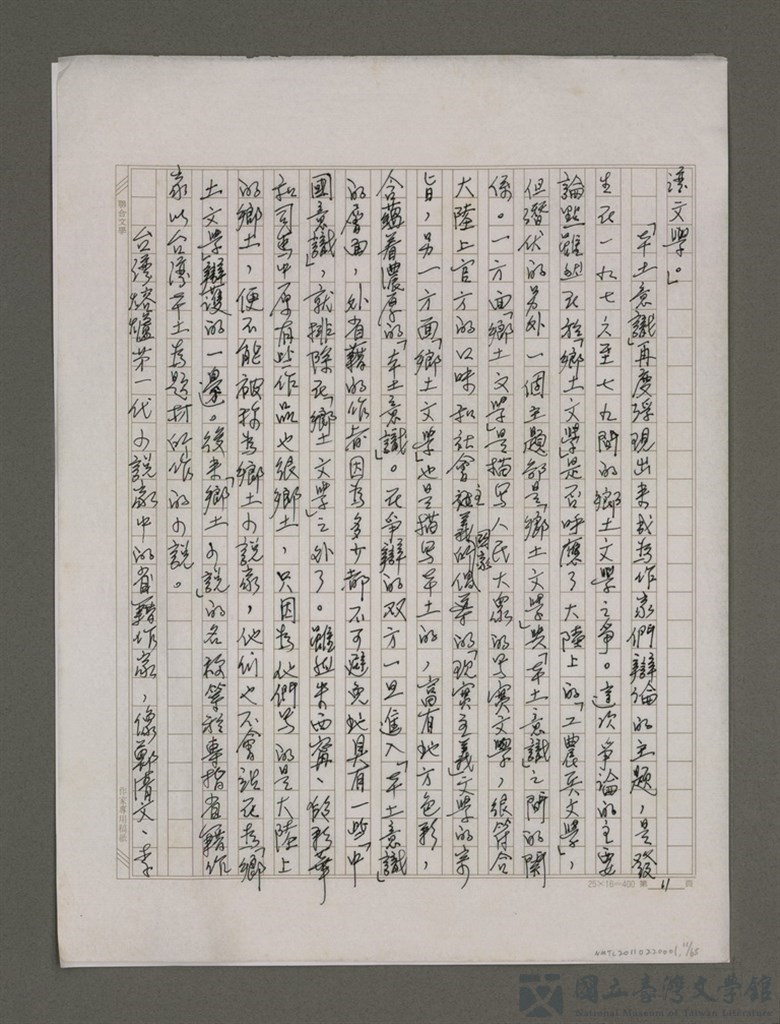 湾文學。」
「本土意識」再度浮現出來成為作家們辯論的主題，是發
生在一九七六至七九間的鄉土文學之爭。這次爭論的主要
論點雖然在於「鄉土文學」是否呼應了大陸上的「工農兵文學」，
但潛伏的另外一個主題卻是「鄉土文學」與「本土意識」之間的關
係。一方面「鄉土文學」是描寫人民大眾的寫實文學，很符合
大陸上官方的口味和社會主義國家的「現實主義」文學的宗
旨，另一方面「鄉土文學」也是描寫本土的，富有地方色彩，
含蘊着濃厚的「本土意識」。在爭辯的双方一旦進入「本土意識」
的層面，外省籍的作者因為多少都不可避免地具有一些「中
國意識」，就排除在「鄉土文學」之外了。雖然朱西甯、段彩華
和司馬中原有些作品也很鄉土，只因為他們寫的是大陸上
的鄉土，便不能被称為鄉土小說家，他們也不會站在為「鄉
土文學」辯護的一邊。後來「鄉土小說」的名称等於專指省籍作
家以台灣本土為題材所作的小說。
台灣熔爐第一代小說家中的省籍作家，像鄭清文、李
聯合文學
作家專用稿紙
25×16=400 第 11 頁
NMTL20110220001, 11/65
國立臺灣文學館
National Museum of Taiwan Literature